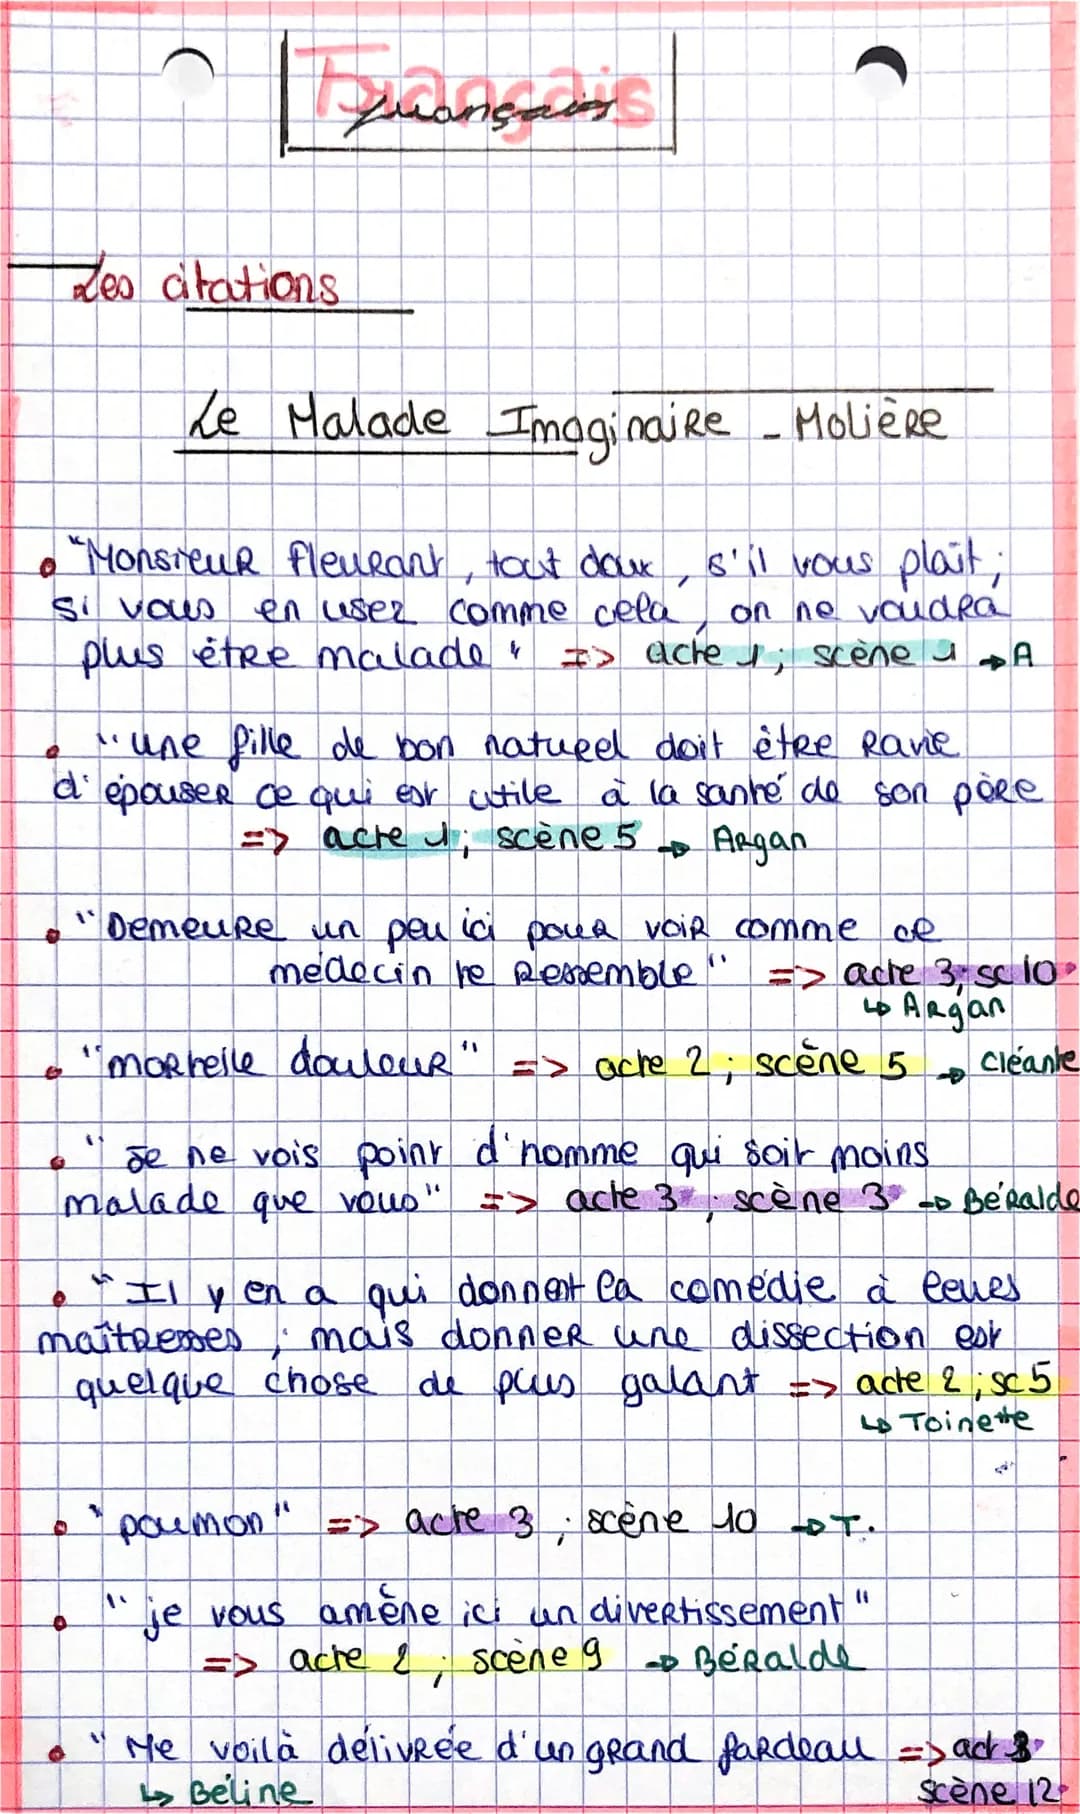 Français
Français
Les citations
Le Malade Imaginaire - Molière
• "Monsieur Fleurant, tout doux, s'il vous plaît;
si vous en usez comme cela, on ne voudra
plus être malade" => acte 1; scène 1 → A
• "une fille de bon naturel doit être ravie
d'épouser ce qui est utile à la santé de son père
=> acte 1; scène 5 → Argan
• "Demeure un peu ici pour voir comme ce
médecin te ressemble" => acte 3; sc 10
↳ Argan
• "mortelle douleur" => acte 2; scène 5 → Cléante
• "Je ne vois point d'homme qui soit moins
malade que vous" => acte 3; scène 3 → Béralde
• "Il y en a qui donnent la comédie à leurs
maîtresses; mais donner une dissection est
quelque chose de plus galant => acte 2; sc 5
↳ Toinette
• "poumon" => acte 3; scène 10 → T.
• "je vous amène ici un divertissement"
=> acte 2; scène 9 → Béralde
• "Me voilà délivrée d'un grand fardeau => act 3
↳ Béline scène 12